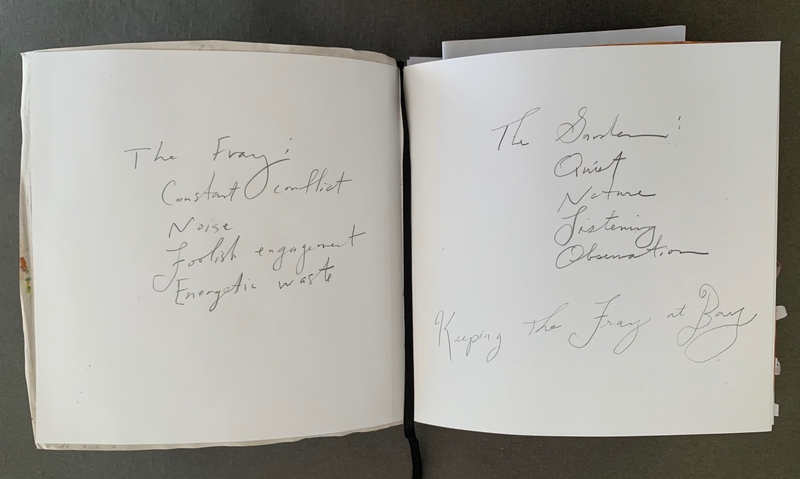 The Fray:
Constant conflict
Noise
Foolish engagement
Energetic waste
The Garden:
Quiet
Nature
Listening
Observation
Keeping the Fray at Bay